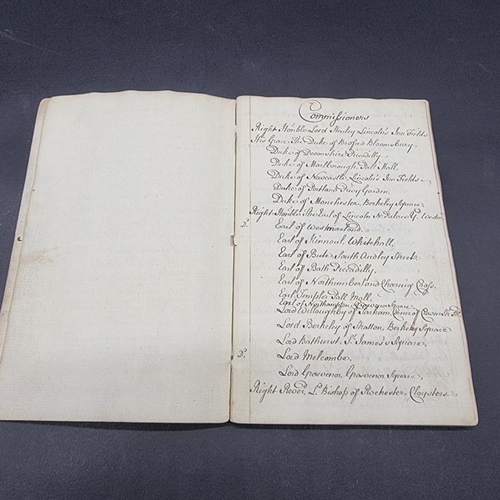 Commissioners
Right Honble Lord Lincoln's Inn Fields
His Grace The Duke of Bedford Bloomsbury.
Duke of Devonshire Piccadilly
Duke of Marlborough Pall Mall.
Duke of Newcastle Lincoln's Inn Fields
Duke of Portland Privy Garden.
Duke of Manchester Berkeley Square
Right Honble The Earl of Lincoln
D. Earl of Westmorland.
Earl of Kinnoul Whitehall.
Earl of Bute South Audley Street.
Earl of Bath Piccadilly.
Earl of Northumberland Charing Cross.
Earl Temple Pall Mall.
Earl of Northampton Grosvenor Square
Lord Willoughby of Parham,
Lord Berkeley of Stratton, Berkeley Square
Lord Bathurst St James's Square.
D. Lord Melcombe.
Lord Grosvenor Grosvenor Square.
Right Revd. Ld Bishop of Rochester, Cloysters.